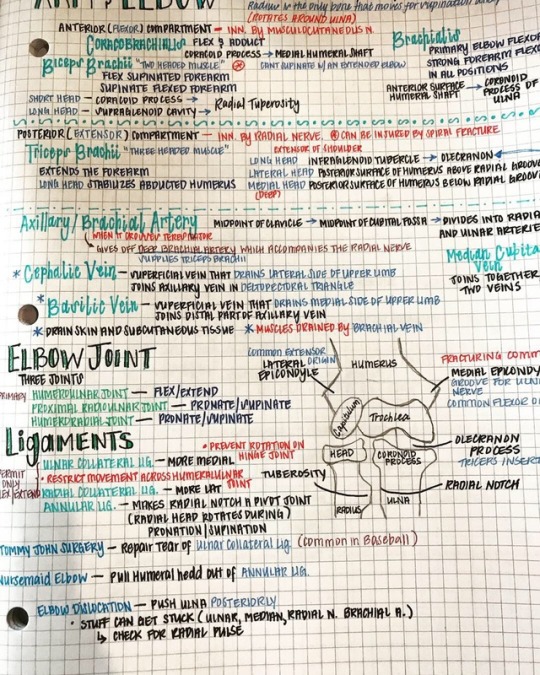 ARM & ELBOW
Radius is the only bone that moves for supination
(ROTATES AROUND ULNA)
ANTERIOR (FLEXOR) COMPARTMENT – INN. BY MUSCULOCUTANEOUS N.
CORACOBRACHIALIS FLEX & ADDUCT
CORACOID PROCESS → MEDIAL HUMERAL SHAFT
Biceps Brachii "TWO HEADED MUSCLE" CAN'T SUPINATE W/ AN EXTENDED ELBOW
FLEX SUPINATED FOREARM
SUPINATE FLEXED FOREARM
SHORT HEAD – CORACOID PROCESS →
LONG HEAD – SUPRAGLENOID CAVITY → Radial Tuberosity
Brachialis
PRIMARY ELBOW FLEXOR
STRONG FOREARM FLEXO
IN ALL POSITIONS
ANTERIOR SURFACE HUMERAL SHAFT → CORONOID PROCESS OF ULNA
POSTERIOR (EXTENSOR) COMPARTMENT – INN. BY RADIAL NERVE. CAN BE INJURED BY SPIRAL FRACTURE
Triceps Brachii "THREE HEADED MUSCLE"
EXTENDS THE FOREARM
LONG HEAD STABILIZES ABDUCTED HUMERUS
EXTENSOR OF SHOULDER
LONG HEAD INFRAGLENOID TUBERCLE → OLECRANON
LATERAL HEAD POSTERIOR SURFACE OF HUMERUS ABOVE RADIAL GROOVE
MEDIAL HEAD POSTERIOR SURFACE OF HUMERUS BELOW RADIAL GROOVE
(DEEP)
Axillary/Brachial Artery MIDPOINT OF CLAVICLE → MIDPOINT OF CUBITAL FOSSA → DIVIDES INTO RADIA
AND ULNAR ARTERIE
WHEN IT CROSSES TERES MAJOR
GIVES OFF DEEP BRACHIAL ARTERY WHICH ACCOMPANIES THE RADIAL NERVE
SUPPLIES TRICEPS BRACHII
* Cephalic Vein – SUPERFICIAL VEIN THAT DRAINS LATERAL SIDE OF UPPER LIMB
JOINS AXILLARY VEIN IN DELTOPECTORAL TRIANGLE
Median Cubita
Vein
JOINS TOGETHER
TWO VEINS
* Basilic Vein – SUPERFICIAL VEIN THAT DRAINS MEDIAL SIDE OF UPPER LIMB
JOINS DISTAL PART OF AXILLARY VEIN
* DRAIN SKIN AND SUBCUTANEOUS TISSUE * MUSCLES DRAINED BY BRACHIAL VEIN
ELBOW JOINT
THREE JOINTS
PRIMARY HUMEROULNAR JOINT – FLEX/EXTEND
PROXIMAL RADIOULNAR JOINT – PRONATE/SUPINATE
HUMERORADIAL JOINT – PRONATE/SUPINATE
COMMON EXTENSOR ORIGIN
LATERAL EPICONDYLE
HUMERUS
FRACTURING COMM
MEDIAL EPICONDY
GROOVE FOR ULN
NERVE
COMMON FLEXOR O
Capitulum
Trochlea
HEAD
CORONOID PROCESS
OLECRANON PROCESS
TRICEPS INSERT
TUBEROSITY
RADIAL NOTCH
RADIUS
ULNA
LIGAMENTS
• PREVENT ROTATION ON HINGE JOINT
ULNAR COLLATERAL LIG. – MORE MEDIAL
• RESTRICT MOVEMENT ACROSS HUMERALULNAR JOINT
RADIAL COLLATERAL LIG. – MORE LAT
PERMIT ONLY
ANNULAR LIG. – MAKES RADIAL NOTCH A PIVOT JOINT
(RADIAL HEAD ROTATES DURING)
PRONATION/SUPINATION
TOMMY JOHN SURGERY – Repair tear of Ulnar Collateral Lig. (Common in Baseball)
Nursemaid Elbow – Pull Humeral head out of ANNULAR LIG.
ELBOW DISLOCATION – PUSH ULNA POSTERIORLY
• STUFF CAN GET STUCK (ULNAR, MEDIAN, RADIAL N. BRACHIAL A.)
↳ CHECK FOR RADIAL PULSE